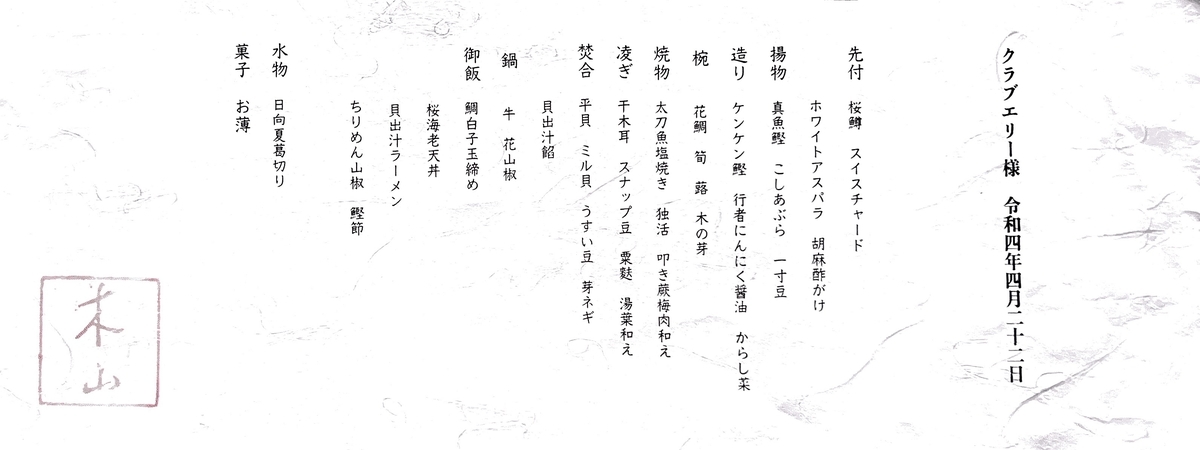 クラブエリー様　令和四年四月二十二日
先付　桜鱒　スイスチャード
ホワイトアスパラ　胡麻酢がけ
揚物　真魚鰹　こしあぶら　一寸豆
造り　ケンケン鰹　行者にんにく醤油　からし菜
椀　花鯛　筍　蕗　木の芽
焼物　太刀魚塩焼き　独活　叩き蕨梅肉和え
凌ぎ　干木耳　スナップ豆　粟麩　湯葉和え
焚合　平貝　ミル貝　うすい豆　芽ネギ
貝出汁餡
鍋　牛　花山椒
御飯　鯛白子玉締め
桜海老天丼
貝出汁ラーメン
ちりめん山椒　鰹節
水物　日向夏葛切り
菓子　お薄
木山